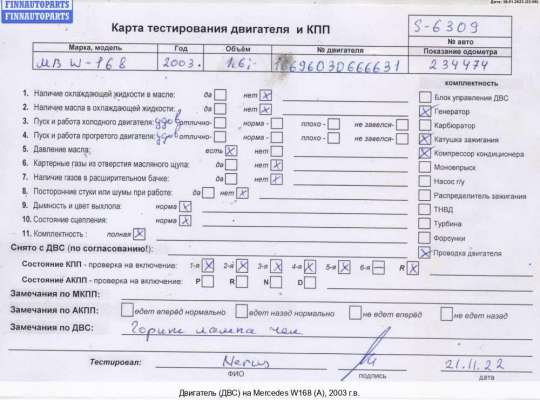 FINNAUTOPARTS
FINNAUTOPARTS
Карта тестирования двигателя и КПП
S-6309
№ авто
Марка, модель Год Объём № двигателя Показание одометра
MB W-168 2003. 1.6i- 234474
комплектность
1. Наличие охлаждающей жидкости в масле: да нет X
2. Наличие масла в охлаждающей жидкости: да нет X
3. Пуск и работа холодного двигателя: удов отлично- норма - плохо - не завелся-
4. Пуск и работа прогретого двигателя: удов отлично- норма - плохо - не завелся-
5. Давление масла: есть X нет
6. Картерные газы из отверстия масляного щупа: да нет X
7. Наличие газов в расширительном бачке: да нет X
8. Посторонние стуки или шумы при работе: да нет X
9. Дымность и цвет выхлопа: норма X
10. Состояние сцепления: норма X
11. Комплектность : полная X
Блок управления ДВС
X Генератор
Карбюратор
X Катушка зажигания
X Компрессор кондиционера
Моновпрыск
Насос г/у
Распределитель зажигания
ТНВД
Турбина
Форсунки
X Проводка двигателя
Снято с ДВС (по согласованию!):
Состояние КПП - проверка на включение: 1-я X 2-я X 3-я X 4-я X 5-я X 6-я — R X
Состояние АКПП - проверка на включение: P R N D
Замечания по МКПП:
Замечания по АКПП: едет вперёд нормально едет назад нормально не едет вперёд не едет назад
Замечания по ДВС: Горит лампа чек
Тестировал: 21.11.22
ФИО подпись дата
Двигатель (ДВС) на Mercedes W168 (A), 2003 г.в.